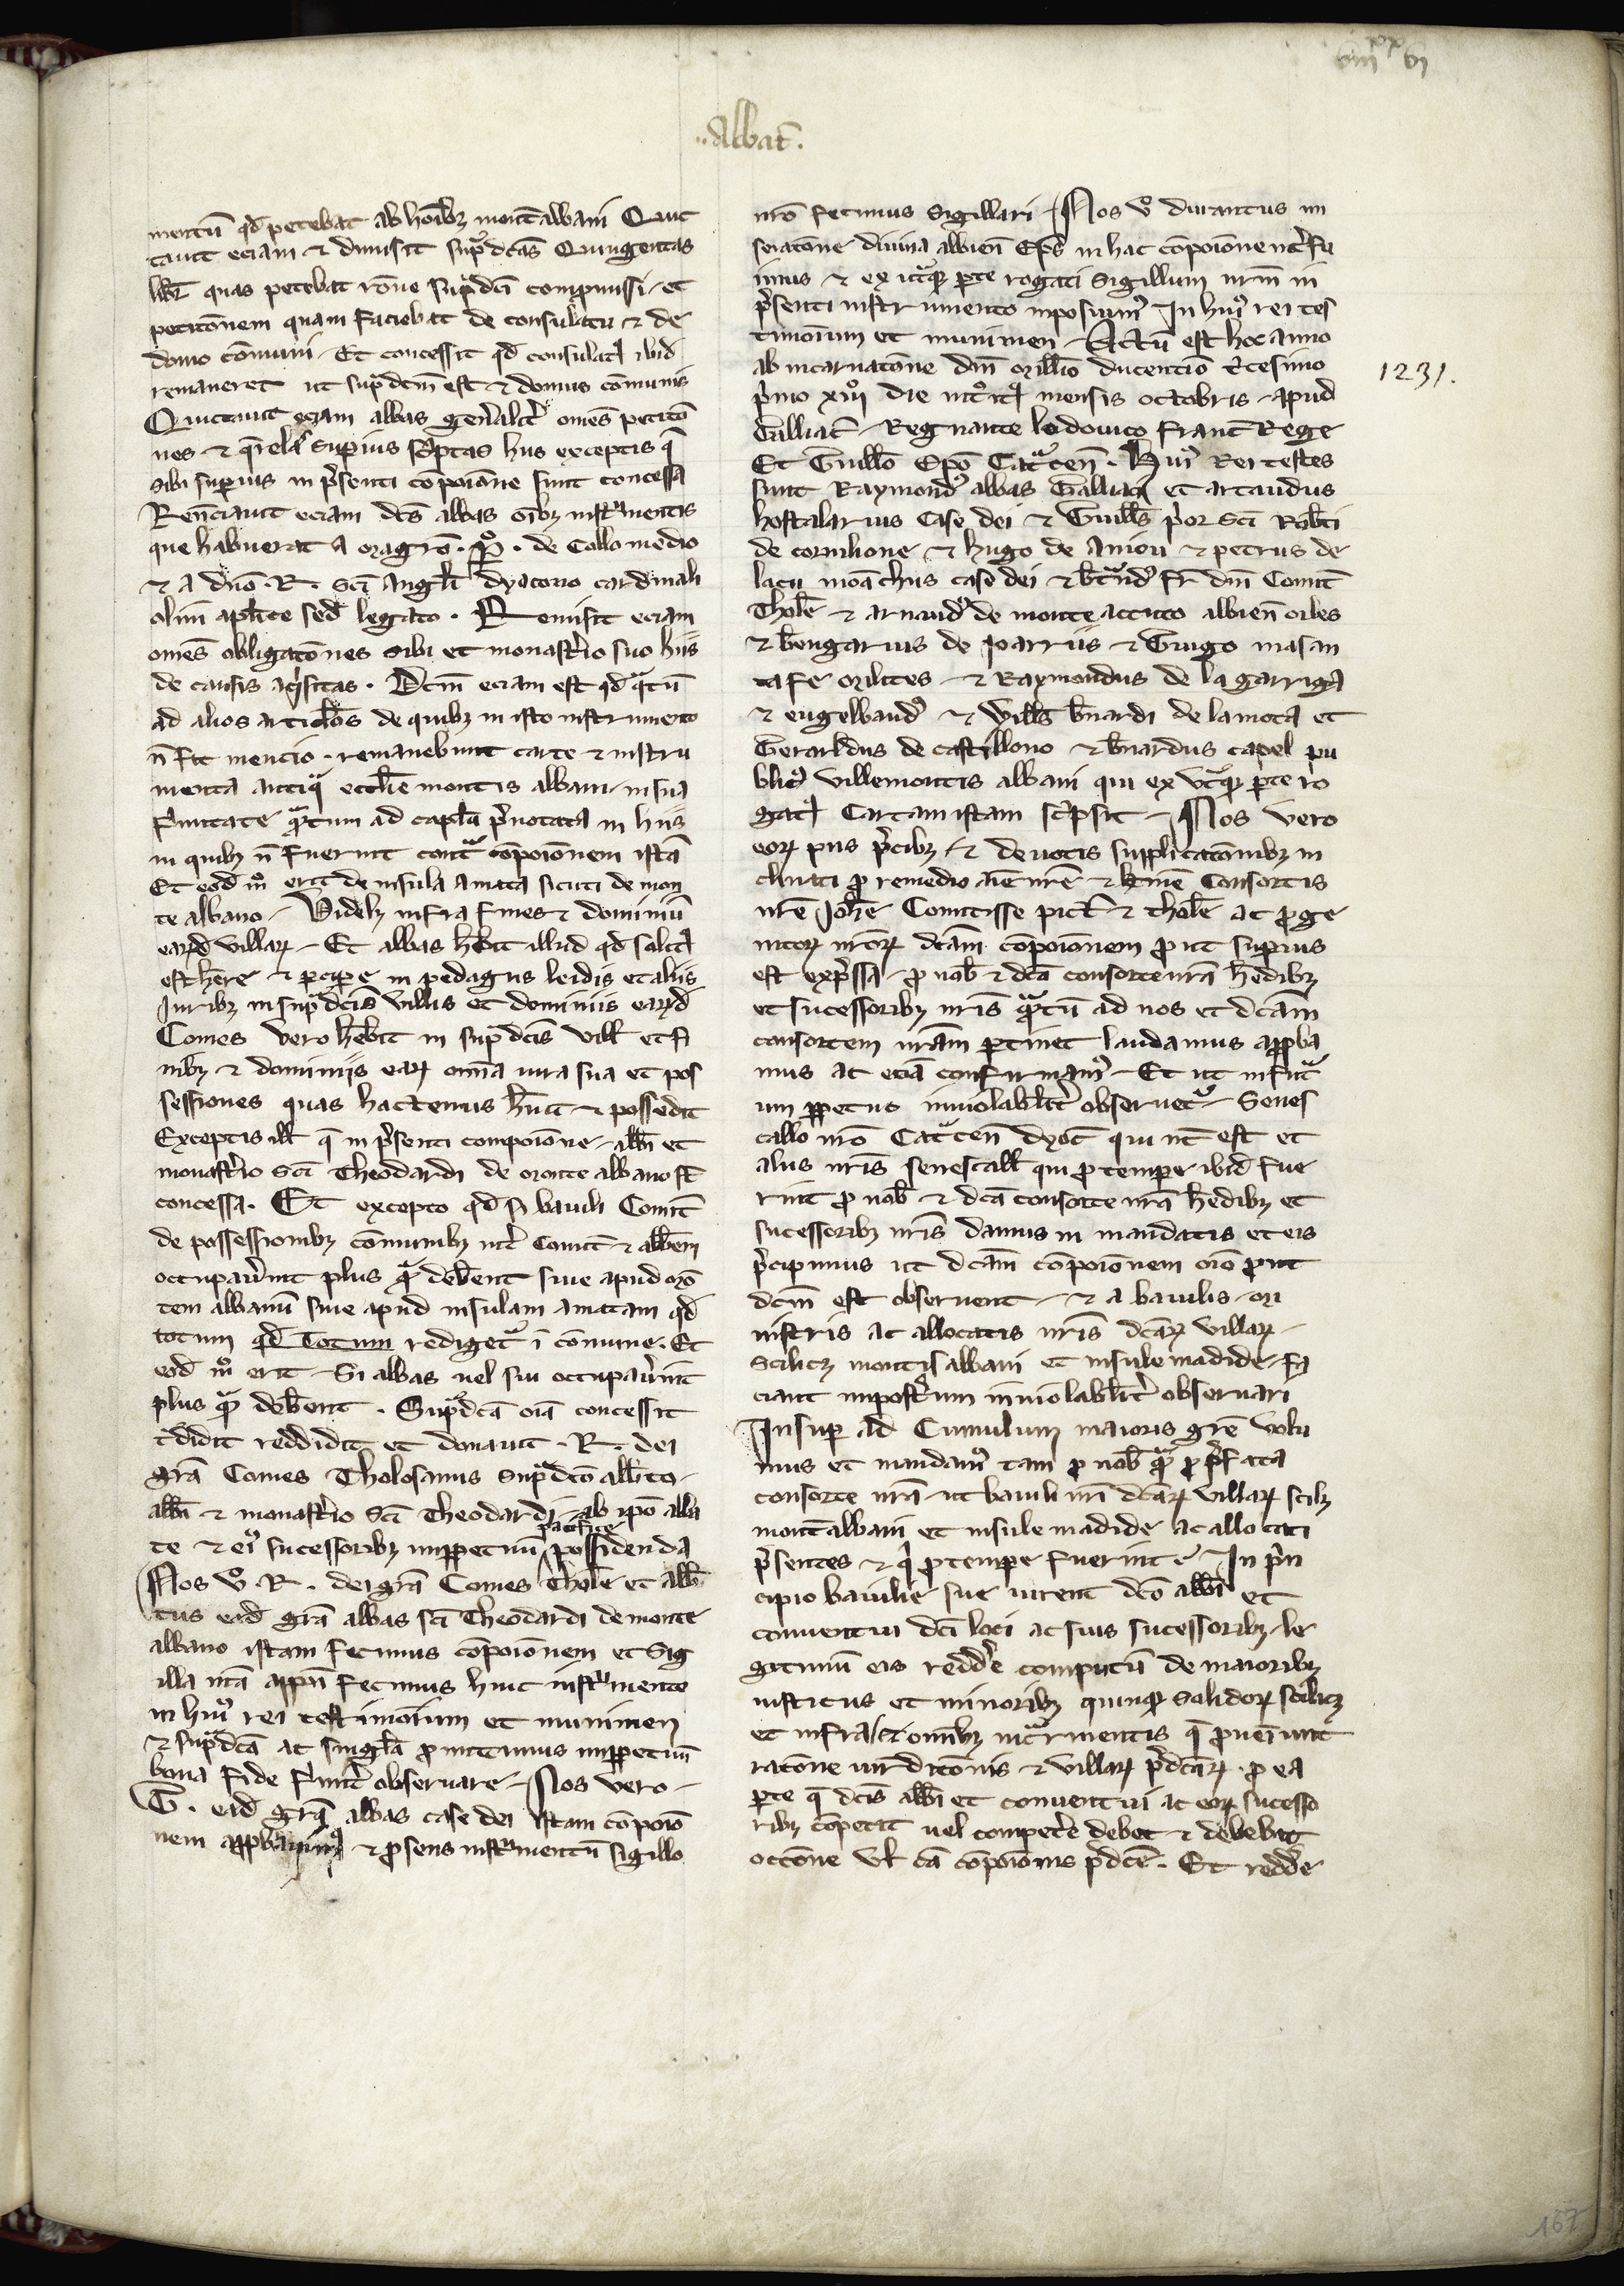 viii xx vi
..Abbat̄.
mentū qd̄ petebat ab hoīb₃ mont̄ albani Quic
tauit eciam ⁊ dimisit sup̄ dc̄as Quingentas
libr̄ quas petebat rōne sup̄ dc̄i compmissi et
petitōnem quam faciebat de consulatu ⁊ de
domo cōmuni Et concessit qd̄ consulat⁹ ibid̄
remaneret ut sup̄ dcm̄ est ⁊ domus cōmunis
Quictauit eciam abbas gen̄alit̄ om̄s petitō
nes ⁊ q̄relas superius sc̄ptas hiis exceptis q̄
sibi superius in p̄senti cōpōiōne sunt concessa
Ren̄ciauit eciam dc̄s abbas oīb₃ instr̄mentis
que habuerat a magr̄o . P̄ . de Collo medio
⁊ a dn̄o . R . Sc̄i Angl̄i dyacono cardinali
olim aplīce sed̄ legato . Remisit eciam
om̄s obligatōnes sibi et monast̄io suo hiis
de causis aq̄sitas . Dcm̄ eciam est qd̄ q̄tū
ad alios articl̄os de quib₃ in isto instrumento
n̄ fit mencio . remanebunt carte ⁊ instru
menta antiq̄ eccl̄ie montis albani in sua
firmitate q̄ntum ad capl̄a p̄notata in hiis
in quib₃ n̄ fuerint cont̄ cōpōiōnem istā
Et eod̄ m̊ erit de insula amata sicuti de mon
te albano Videl₃ infra fines ⁊ dominiū
eard̄ villar̄ Et abbas hēbit illud qd̄ solit⁹
est hēre ⁊ percipe in pedagiis leidis et aliis
Jurib₃ in sup̄ dc̄is villis et dominiis eard̄
Comes vero hēbit in sup̄ dc̄is vill̄ et fi
nib₃ ⁊ dominiis ear̄ omīa iura sua et pos
sessiones quas hactenus h̄uit ⁊ possedit
Exceptis ill̄ q̄ in p̄senti compōiōne abb̄i et
monast̄io Sc̄i Theodardi de monte albano st̄
concessa . Et excepto qd̄ si bauili Comit̄
de possessionib₃ cōmunib₃ int̄ Comit̄ ⁊ abb̄em
occupau̅int plus q̄ deb̄ent siue apud mō
tem albanū siue apud insulam amatam qd̄
totum qd̄ totum rediget̄ ī cōmune . Et
eod̄ m̊ erit Si abbas uel sui occupau̅int
plus q̄ deb̄ent . Sup̄dc̄a oīa concessit
t̄didit reddidit et donauit . R . dei
grā Comes Tholosanus sup̄dc̄o alb̄to
abb̄i ⁊ monast̄io Sc̄i Theodardi ab ip̄o abba
te ⁊ ei⁹ sucessorib₃ imppetuū pacifice possidenda
Nos v̊ . R . dei grā Comes Thol̄e et alb̄
tus ead̄ grā abbas sc̄i Theodardi de monte
albano istam fecimus cōpōiōnem et Sig
illa nr̄a appn̄ fecimus huic instr̄mento
in hui⁹ rei testimonium et munimen
⁊ sup̄dc̄a ac singl̄a promittimus imppetuū
bona fide firmit̄ observare Nos vero
G . ead̄ grā abbas case dei istam cōpōiō
nem approbauim⁹ ⁊ presens instr̄mentū sigillo
nr̄o fecimus Sigillari Nos v̊ durantus mi
seratōne diuina albien̄ Ep̄s in hac cōpōiōne int̄fu
imus ⁊ ex ut̄q₃ parte rogati Sigillum nrm̄ in
p̄senti instrumento imposuim⁹ In hui⁹ rei tes
timonium et munimen Actū est hoc anno
ab incarnatōne dn̄i millīo ducentīo t̄cesimo
p̄mo xiiij die int̊it⁹ mensis octobris apud
Galliac̄ Regnante lodouico franc̄ Rege
Et Guillō Ep̄o Cat̄cen̄ . Hui⁹ Rei testes
sunt Raymond⁹ abbas Galliaci et artaudus
hostalarius Case dei ⁊ Guill̄s p̄or Sc̄i Rob̄ti
de cornilione ⁊ hugo de Aniou ⁊ petrus de
lacu monachus case dei ⁊ b̄t̄nd⁹ fr̄ dn̄i Comit̄
Thol̄e ⁊ arnaud⁹ de monte acuto albien̄ miles
⁊ b̄engarius de Joarriis ⁊ Grugo masan
cafe milites ⁊ Raymondus de la garriga
⁊ engelbaud⁹ ⁊ Will̄s b̄nardi de lamota et
Geraldus de castillono ⁊ b̄nardus capel pu
blic⁹ villemontis albani qui ex vt̄q₃ parte ro
gat⁹ Cartam istam sc̄psit Nos vero
eor̄ piis p̄cib₃ ⁊ deuotis supplicatōnib₃ in
clinati pro remedio aīe nr̄e ⁊ kīme Consortis
nr̄e Joh̄e Comitisse pict̄ ⁊ thol̄e ac proge
nitor̄ nr̄or̄ dc̄am cōpōiōnem prout superius
est exp̄ssa pro nob̄ ⁊ dc̄a consorte nr̄a h̄edib₃
et sucessorib₃ nr̄is q̄ntū ad nos et dc̄am
consortem nr̄am pertinet laudamus approba
mus ac eciā confirmam⁹ Et ut in fut̄
um ppetuo inuiolabilit̄ obseruet̄ Senes
callo nr̄o Cat̄cen̄ dyoc̄ qui nc̄ est et
aliis nr̄is senescall̄ qui pro tempe ibid̄ fue
rint pro nob̄ ⁊ dc̄a consorte nr̄a h̄edib₃ et
sucessorib₃ nr̄is damus in mandatis et eis
p̄cipimus ut dc̄am cōpōiōnem oīo prout
dcm̄ est obseruent ⁊ a bauilis mi
nistris ac allocatis nr̄is dc̄ar̄ villar̄
Scilic₃ montis albani et insule madide fa
ciant impost̄um inuiolabilit̄ obseruari
Insup ad Cumulum maioris grē volu
mus et mandam⁹ tam pro nob̄ q̄ pro p̄fata
consorte nr̄a ut bauili nr̄i dc̄ar̄ villar̄ scil₃
mont̄ albani et insule madide ac allocati
p̄sentes ⁊ q̄ pro tempe fuerint In p̄n
cipio bauilie sue iurent dc̄o abb̄i et
conuentui dc̄i loci ac suis sucessorib₃ le
gitimū eis redd̄e computū de maiorib₃
iusticiis et minorib₃ quinq₃ solidor̄ scilic₃
et infra ⁊ omib₃ incr̄mentis q̄ prouen̄iunt
ratōne iur̄dic̄onis ⁊ villar̄ p̄dc̄ar̄ pro ea
parte q̄ dc̄is abb̄i et conuentui ac eor̄ sucesso
rib₃ cōpetit uel compet̄e debet ⁊ debebit
occ̄one vl̄ cā cōpōiōnis p̄dc̄e . Et redd̄e
1231.
167